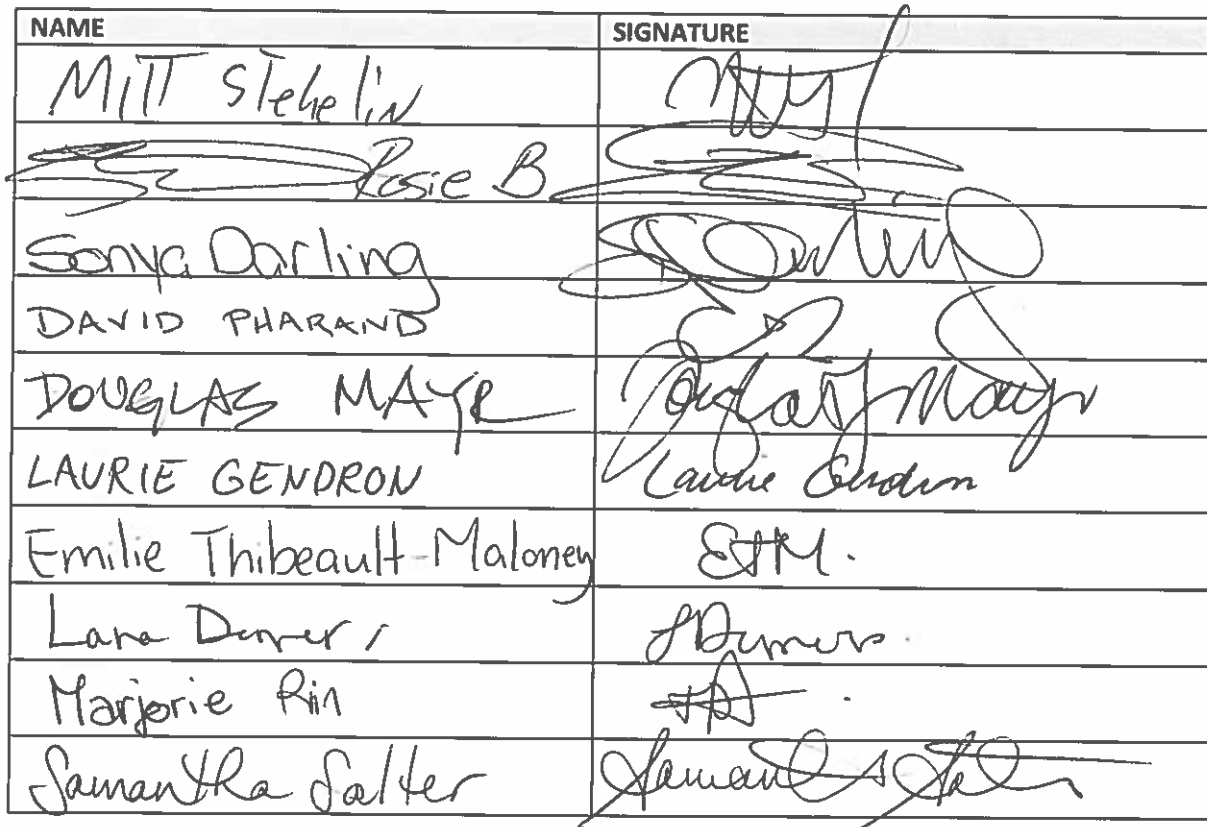 NAME SIGNATURE
MITT Stehelin
Rosie B
Sonya Darling
DAVID PHARAND
DOUGLAS MAYR Douglas J Mayr
LAURIE GENDRON Laurie Gendron
Emilie Thibeault-Maloney ETM.
Lara Demers LDemers
Marjorie Rin
Samantha Salter Samantha Salter